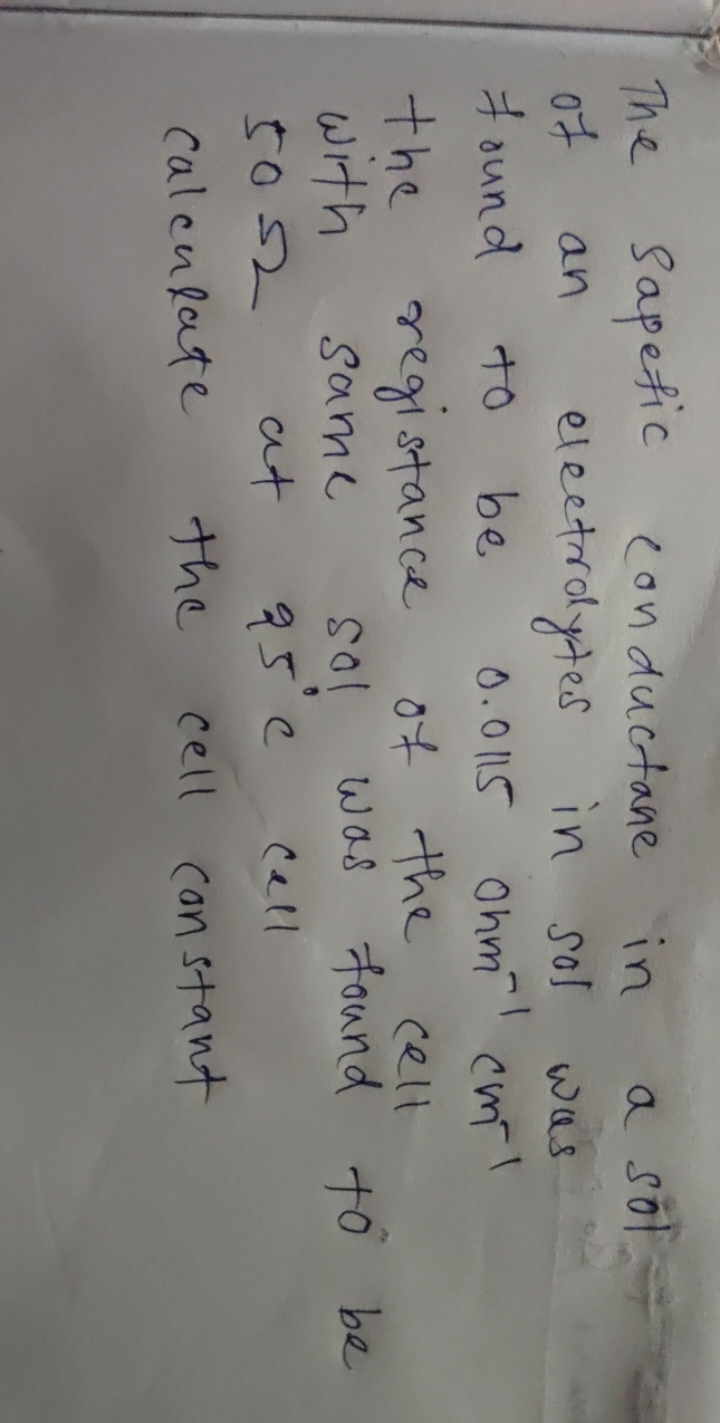 The Sapefic conductane in a sol
of an electrolytes in sol was
found to be 0.0115 ohm⁻¹ cm⁻¹
the registance of the cell
with same sol was found to be
50 Ω at 95°c cell
calculate the cell constant